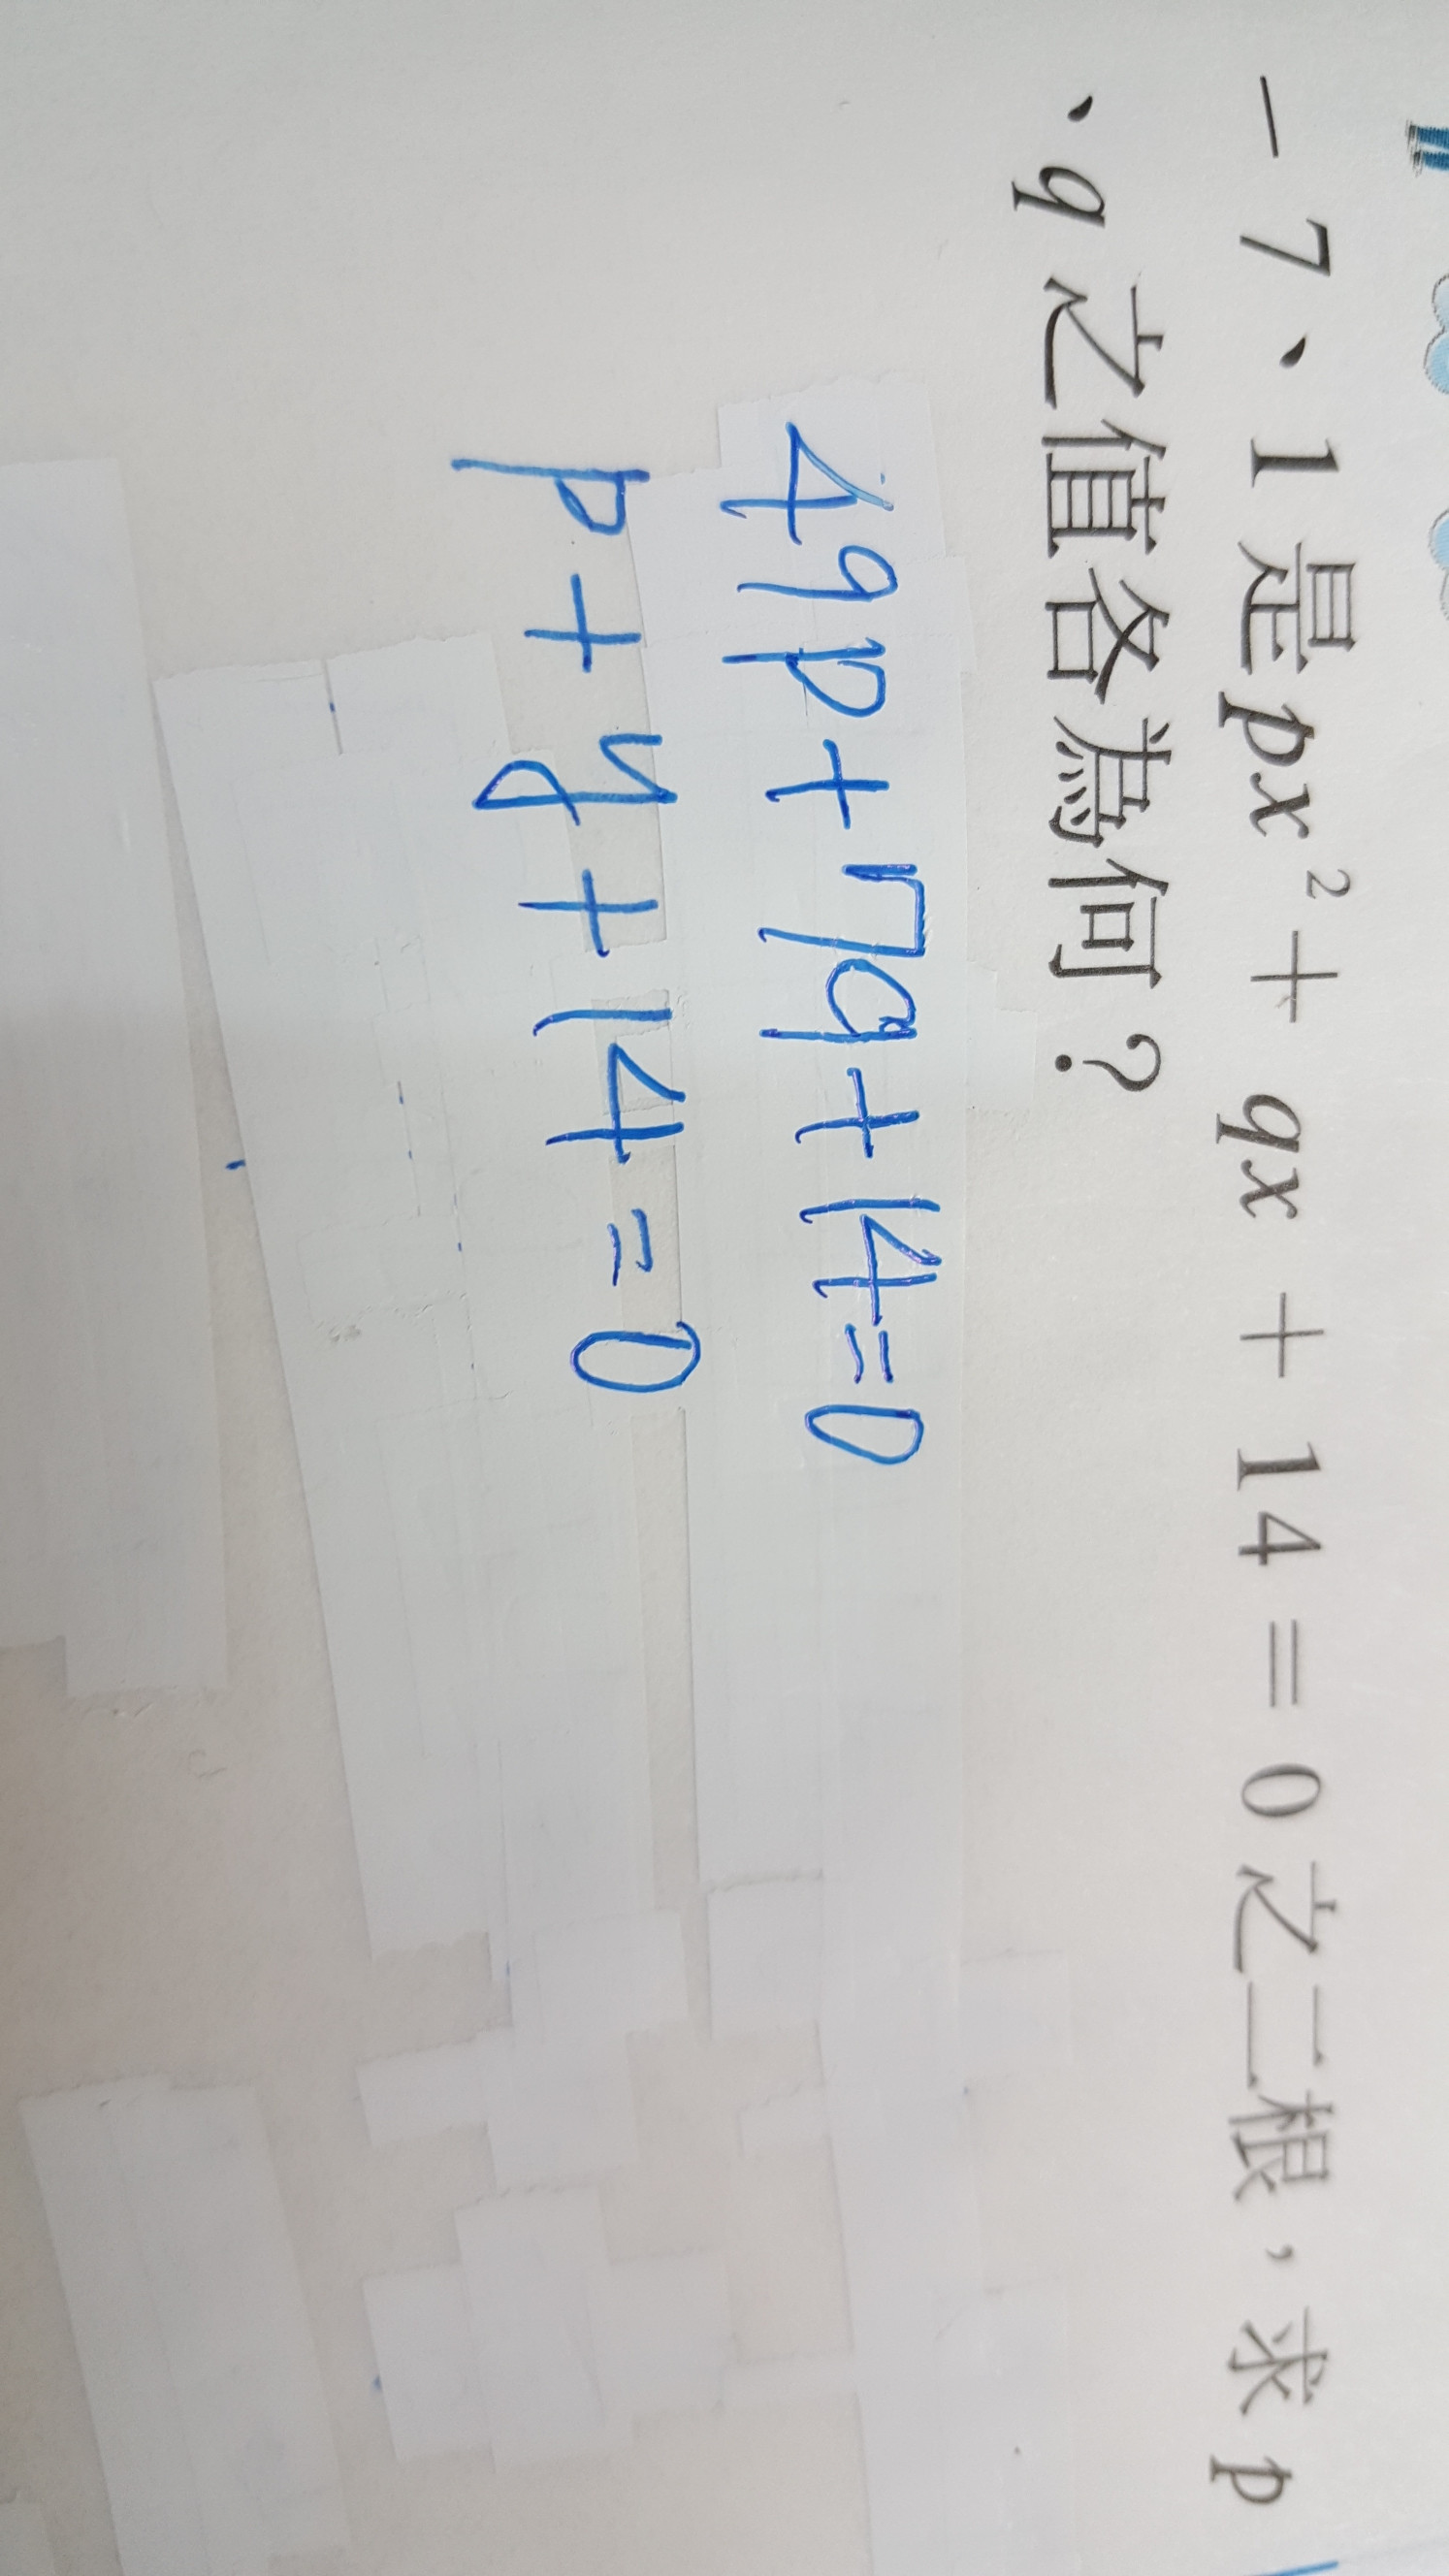 －7、1是px²＋qx＋14＝0之二根，求p
、q之值各為何？
49p+7q+14=0
p+y+14=0